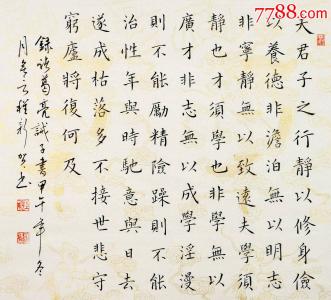 夫君子之行靜以修身儉
以養德非澹泊無以明志
非寧靜無以致遠夫學須
靜也才須學也非學無以
廣才非志無以成學淫漫
則不能勵精險躁則不能
治性年與時馳意與日去
遂成枯落多不接世悲守
窮廬將復何及
錄諸葛亮誡子書甲午年冬
月
7788.com